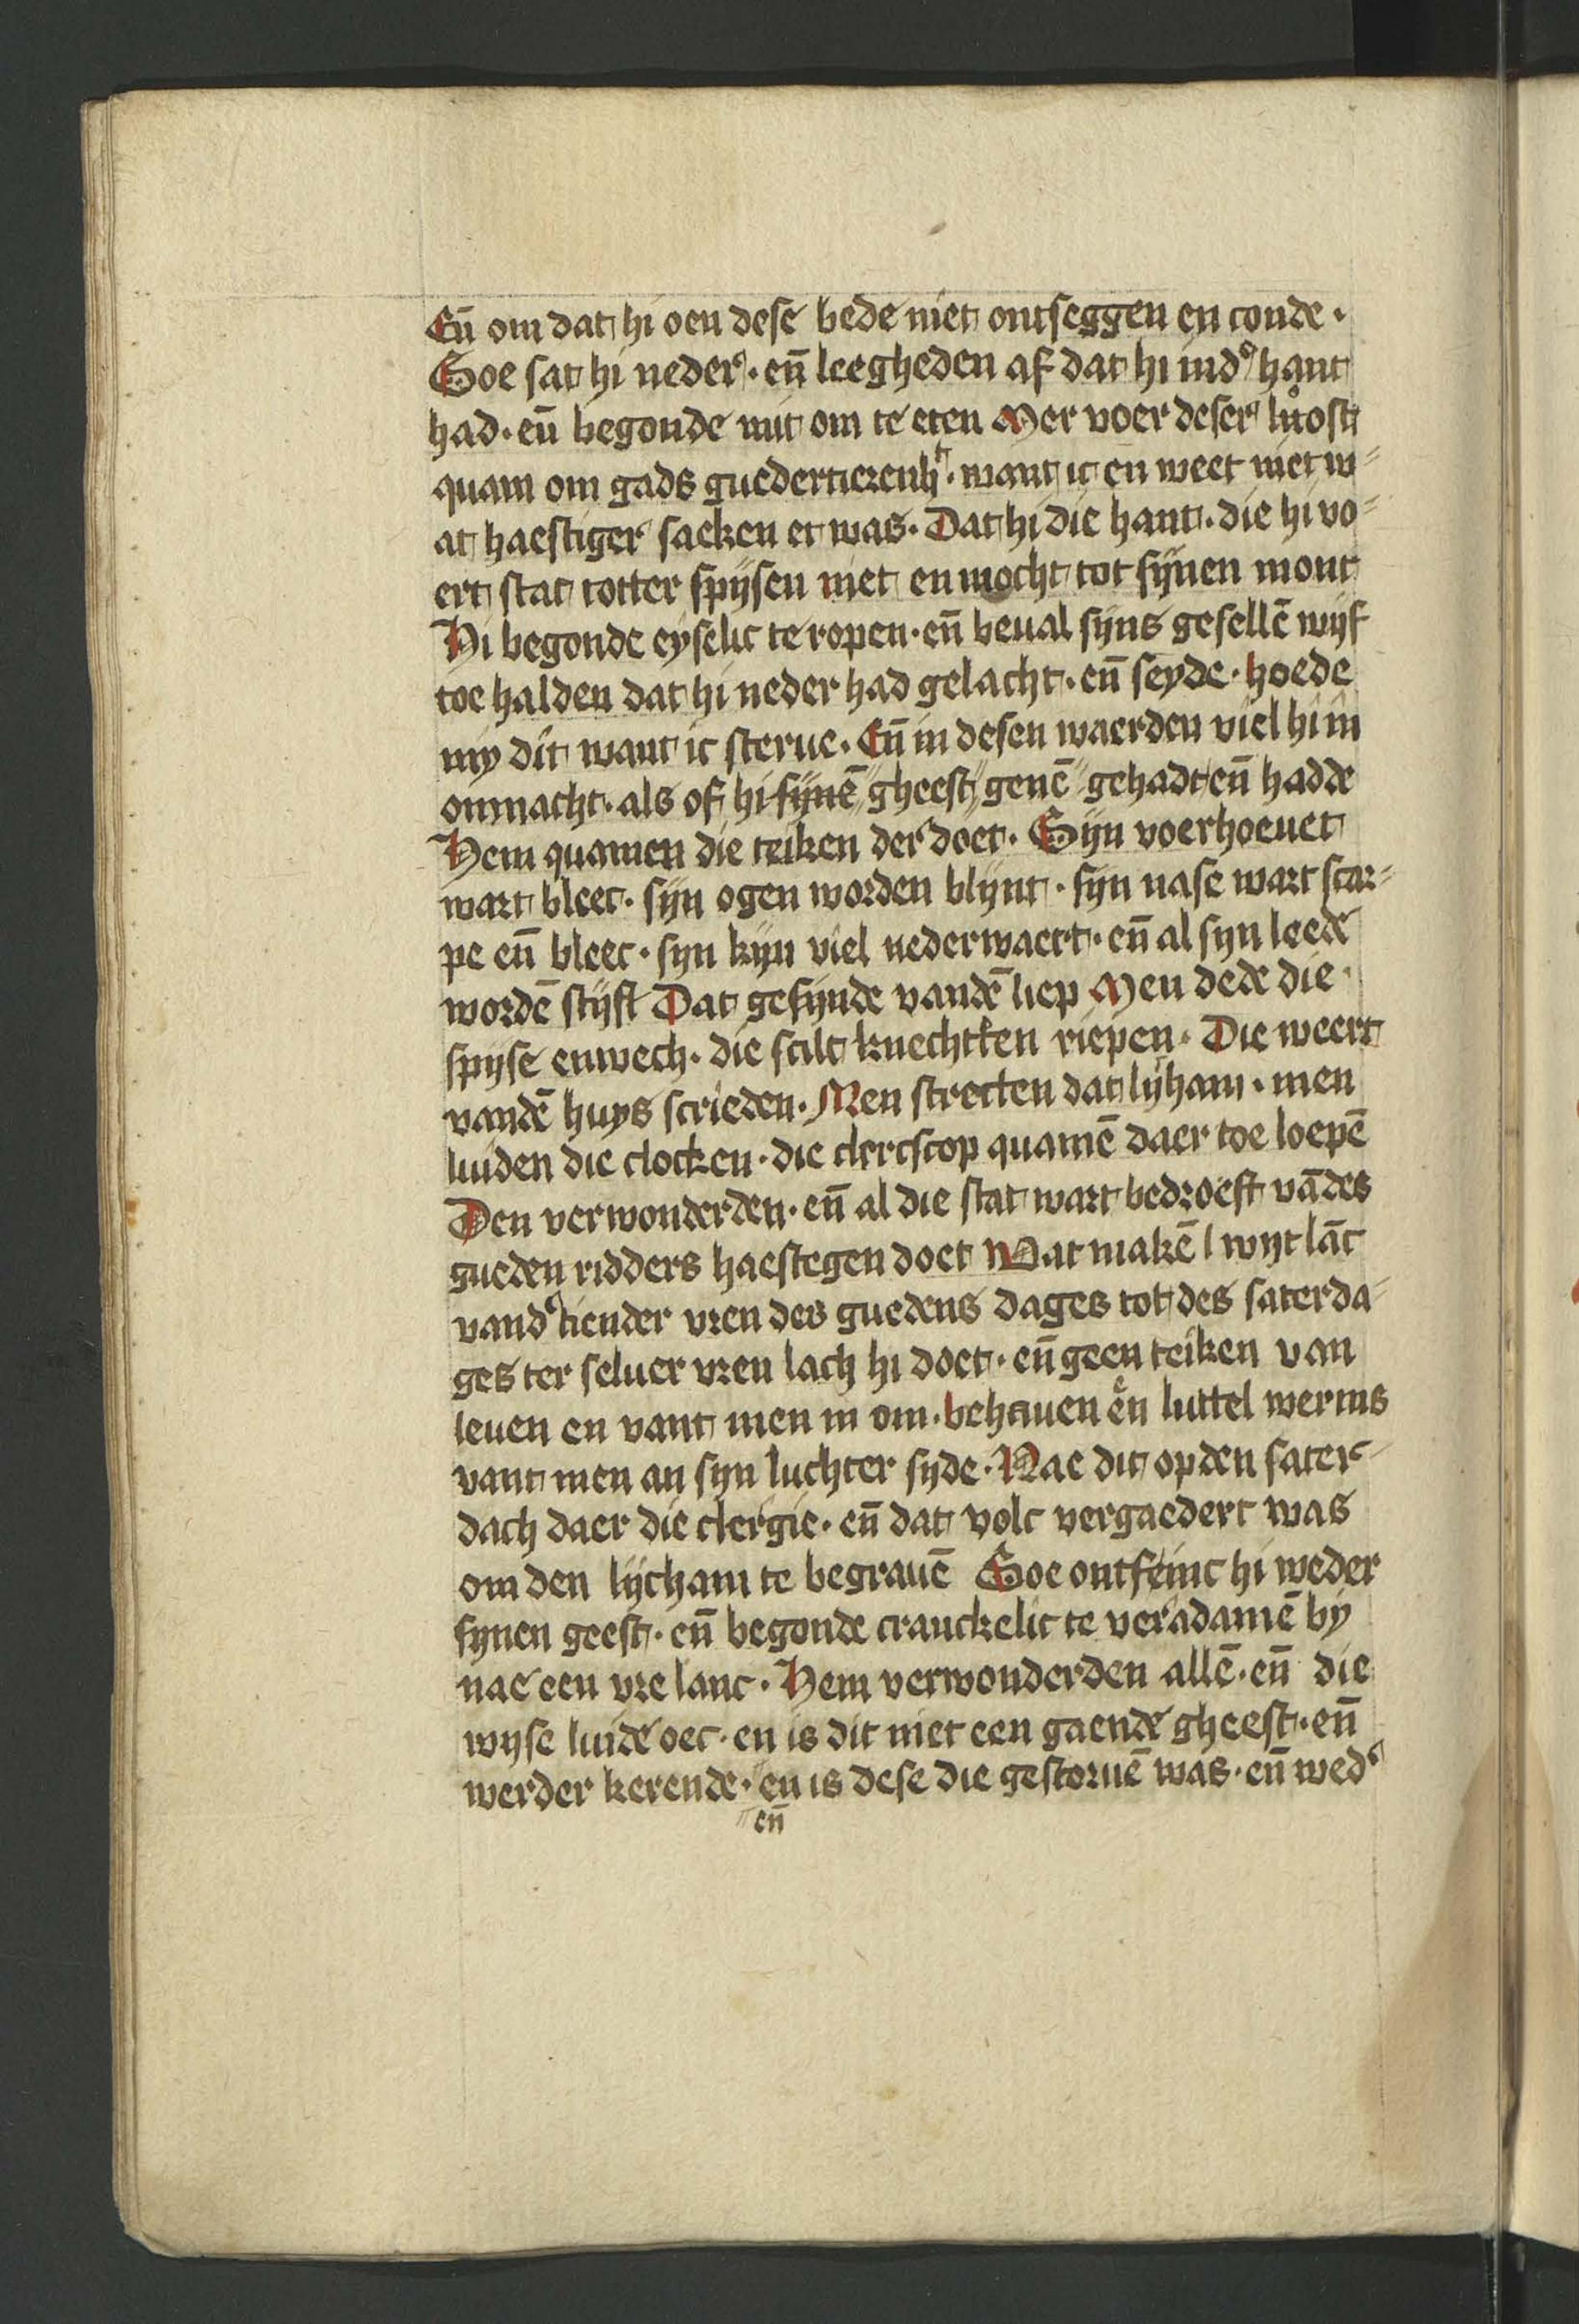 Eñ om dat hi oen dese bede niet ontseggen en conde ·
Soe sat hi neder · eñ leegheden af dat hi ind' hant
had · eñ begonde mit om te eten Mer voer deser
quam om gads guedertierenh't · want ic en weet niet w=
at haestiger saeken et was · Dat hi die hant · die hi vo=
ert stac totter spijsen niet en mocht tot sijnen mont
Hi begonde eyselic te ropen · eñ beual sijns gesellē wijf
toe halden dat hi neder had gelacht · eñ seyde · hoede
my dit want ic sterue · Eñ in desen waerden viel hi in
onmacht · als of hi sijnē gheest genē gehadt eñ hadde
Hem quamen die teiken der doet · Sijn voerhoeuet
wart bleec · sijn ogen worden blijnt · sijn nase wart scar=
pe eñ bleec · syn kijn viel nederwaert · eñ al syn leede
wordē stijf Dat gesijnde vandē liep Men dede die
spijse enwech · die scilt knechtken riepen · Die weert
vandē huys scrieden · Men strecten dat lijham · men
luiden die clocken · die clercscop quamē daer toe loepē
Den verwonderden · eñ al die stat wart bedroeft vādes
gueden ridders haestegen doet Wat makē l wijt lāc
vand' tiender vren des guedens dages tot des saterda=
ges ter seluer vren lach hi doet · eñ geen teiken van
leuen en vant men in om · behauen en luttel werms
vant men an syn luchter syde · Nae dit op den sater=
dach daer die clergie · eñ dat volc vergaedert was
om den lijcham te begrauē Soe ontfeinc hi weder
synen geest · eñ begonde cranckelic te veradamē by
nae een vre lanc · Hem verwonderden allē · eñ die
wyse luide oec · en is dit niet een gaende gheest · eñ
werder kerende · en is dese die gestoruē was · eñ wed'
eñ